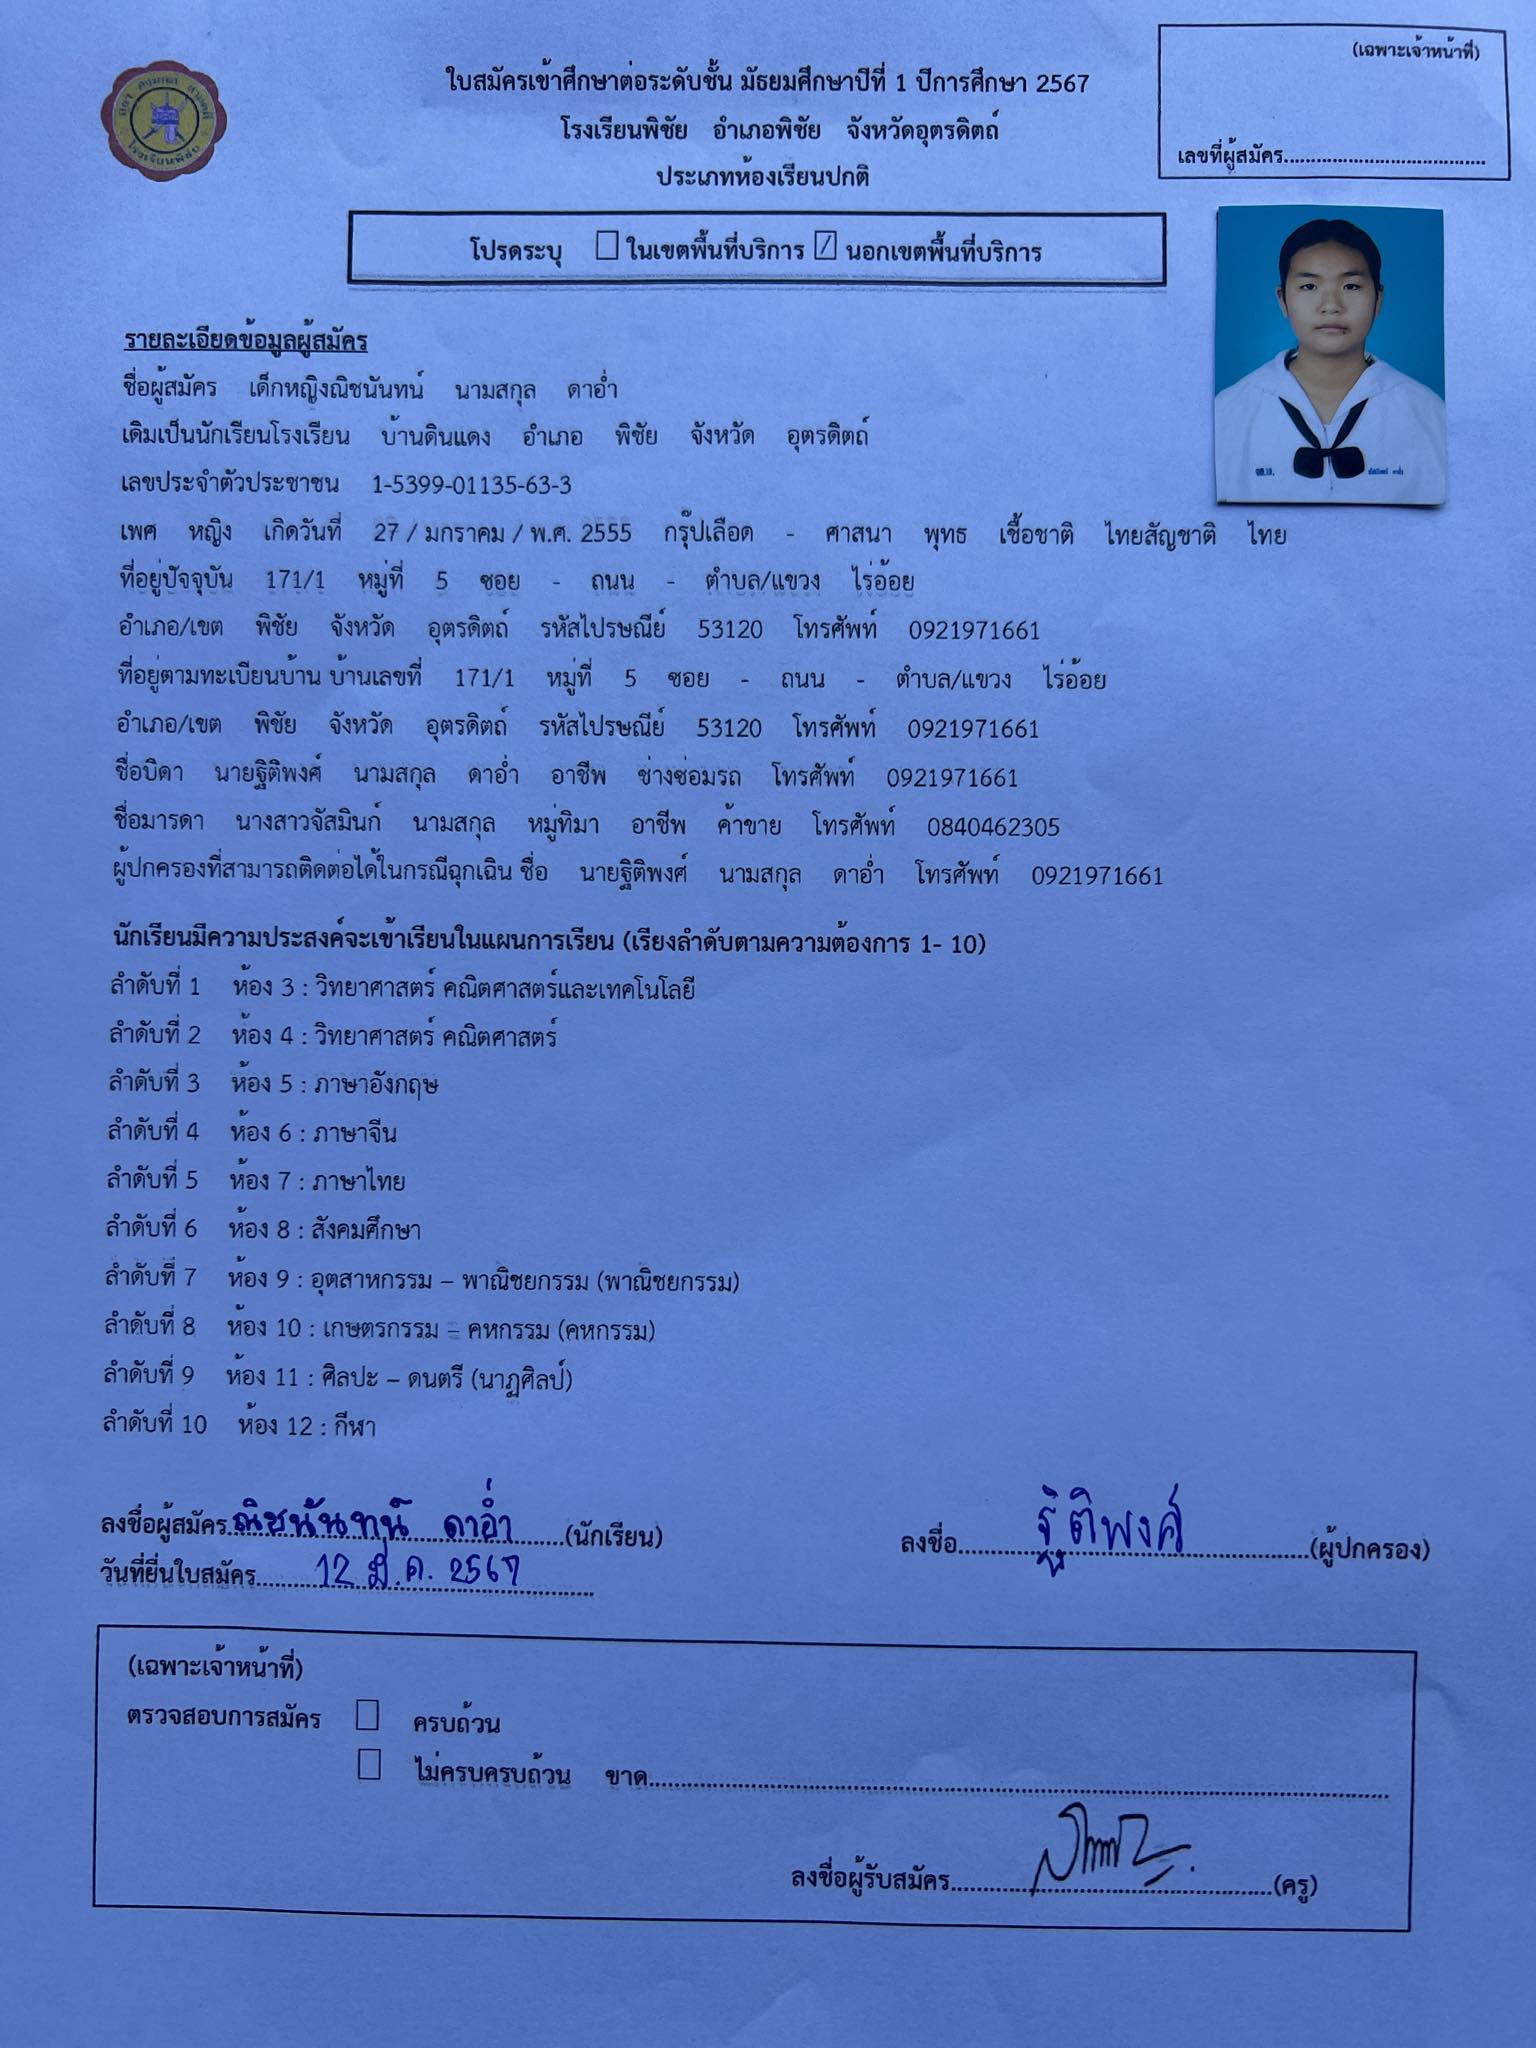 (เฉพาะเจ้าหน้าที่)
เลขที่ผู้สมัคร
โรงเรียนพิชัย
ใบสมัครเข้าศึกษาต่อระดับชั้น มัธยมศึกษาปีที่ 1 ปีการศึกษา 2567
โรงเรียนพิชัย อำเภอพิชัย จังหวัดอุตรดิตถ์
ประเภทห้องเรียนปกติ
โปรดระบุ ในเขตพื้นที่บริการ / นอกเขตพื้นที่บริการ
รายละเอียดข้อมูลผู้สมัคร
ชื่อผู้สมัคร เด็กหญิงณิชนันทน์ นามสกุล ดาอ่ำ
เดิมเป็นนักเรียนโรงเรียน บ้านดินแดง อำเภอ พิชัย จังหวัด อุตรดิตถ์
เลขประจำตัวประชาชน 1-5399-01135-63-3
เพศ หญิง เกิดวันที่ 27 / มกราคม / พ.ศ. 2555 กรุ๊ปเลือด - ศาสนา พุทธ เชื้อชาติ ไทยสัญชาติ ไทย
ที่อยู่ปัจจุบัน 171/1 หมู่ที่ 5 ซอย - ถนน - ตำบล/แขวง ไร่อ้อย
อำเภอ/เขต พิชัย จังหวัด อุตรดิตถ์ รหัสไปรษณีย์ 53120 โทรศัพท์ 0921971661
ที่อยู่ตามทะเบียนบ้าน บ้านเลขที่ 171/1 หมู่ที่ 5 ซอย - ถนน - ตำบล/แขวง ไร่อ้อย
อำเภอ/เขต พิชัย จังหวัด อุตรดิตถ์ รหัสไปรษณีย์ 53120 โทรศัพท์ 0921971661
ชื่อบิดา นายฐิติพงศ์ นามสกุล ดาอ่ำ อาชีพ ช่างซ่อมรถ โทรศัพท์ 0921971661
ชื่อมารดา นางสาวจัสมินก์ นามสกุล หมู่ทิมา อาชีพ ค้าขาย โทรศัพท์ 0840462305
ผู้ปกครองที่สามารถติดต่อได้ในกรณีฉุกเฉิน ชื่อ นายฐิติพงศ์ นามสกุล ดาอ่ำ โทรศัพท์ 0921971661
นักเรียนมีความประสงค์จะเข้าเรียนในแผนการเรียน (เรียงลำดับตามความต้องการ 1- 10)
ลำดับที่ 1 ห้อง 3 : วิทยาศาสตร์ คณิตศาสตร์และเทคโนโลยี
ลำดับที่ 2 ห้อง 4 : วิทยาศาสตร์ คณิตศาสตร์
ลำดับที่ 3 ห้อง 5 : ภาษาอังกฤษ
ลำดับที่ 4 ห้อง 6 : ภาษาจีน
ลำดับที่ 5 ห้อง 7 : ภาษาไทย
ลำดับที่ 6 ห้อง 8 : สังคมศึกษา
ลำดับที่ 7 ห้อง 9 : อุตสาหกรรม – พาณิชยกรรม (พาณิชยกรรม)
ลำดับที่ 8 ห้อง 10 : เกษตรกรรม – คหกรรม (คหกรรม)
ลำดับที่ 9 ห้อง 11 : ศิลปะ – ดนตรี (นาฏศิลป์)
ลำดับที่ 10 ห้อง 12 : กีฬา
ลงชื่อผู้สมัคร ณิชนันทน์ ดาอ่ำ (นักเรียน) ลงชื่อ ฐิติพงศ์ (ผู้ปกครอง)
วันที่ยื่นใบสมัคร 12 มี.ค. 2567
(เฉพาะเจ้าหน้าที่)
ตรวจสอบการสมัคร ครบถ้วน
ไม่ครบครบถ้วน ขาด
ลงชื่อผู้รับสมัคร (ครู)